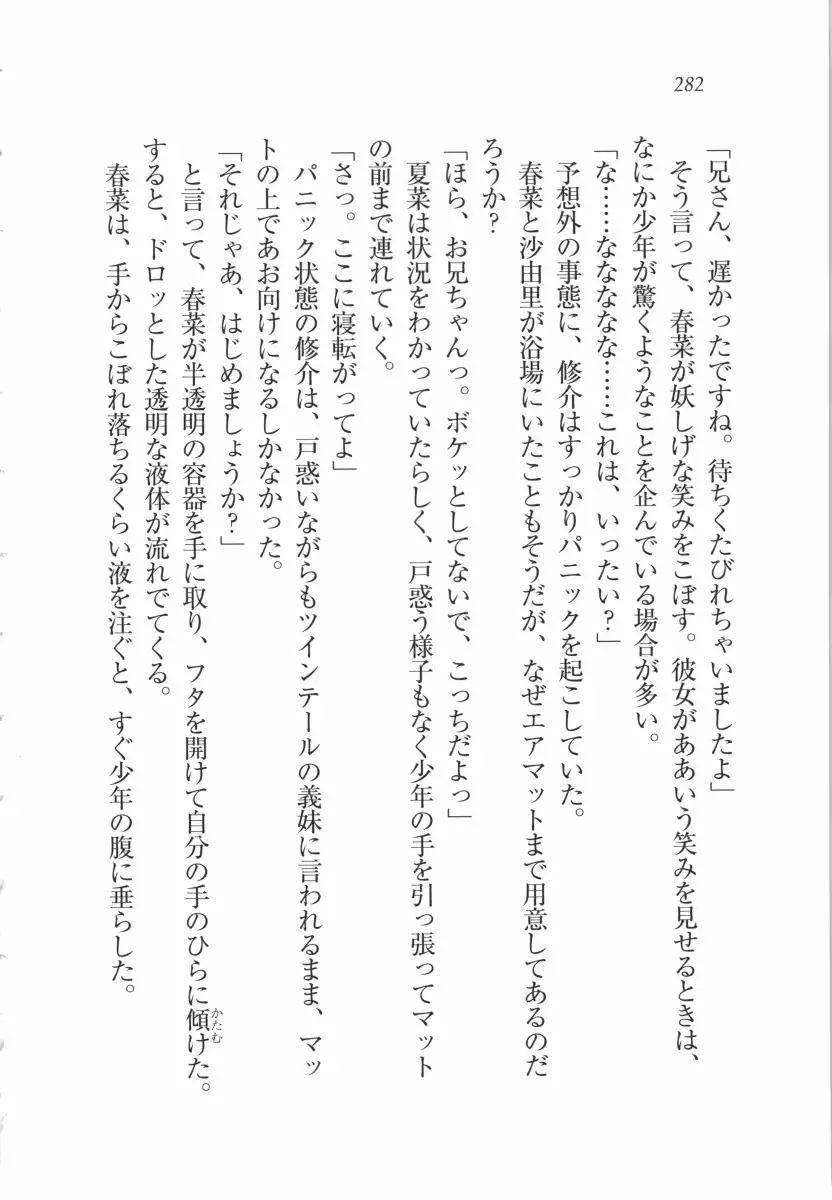 282
「兄さん、遅かったですね。待ちくたびれちゃいましたよ」
そう言って、春菜が妖しげな笑みをこぼす。彼女がああいう笑みを見せるときは、
なにか少年が驚くようなことを企んでいる場合が多い。
「な……なななな……これは、いったい？」
予想外の事態に、修介はすっかりパニックを起こしていた。
春菜と沙由里が浴場にいたこともそうだが、なぜエアマットまで用意してあるのだ
ろうか？
「ほら、お兄ちゃんっ。ボケッとしてないで、こっちだよっ」
夏菜は状況をわかっていたらしく、戸惑う様子もなく少年の手を引っ張ってマット
の前まで連れていく。
「さっ。ここに寝転がってよ」
パニック状態の修介は、戸惑いながらもツインテールの義妹に言われるまま、マッ
トの上であお向けになるしかなかった。
「それじゃあ、はじめましょうか？」
と言って、春菜が半透明の容器を手に取り、フタを開けて自分の手のひらに傾（かたむ）けた。
すると、ドロッとした透明な液体が流れでてくる。
春菜は、手からこぼれ落ちるくらい液を注ぐと、すぐ少年の腹に垂らした。